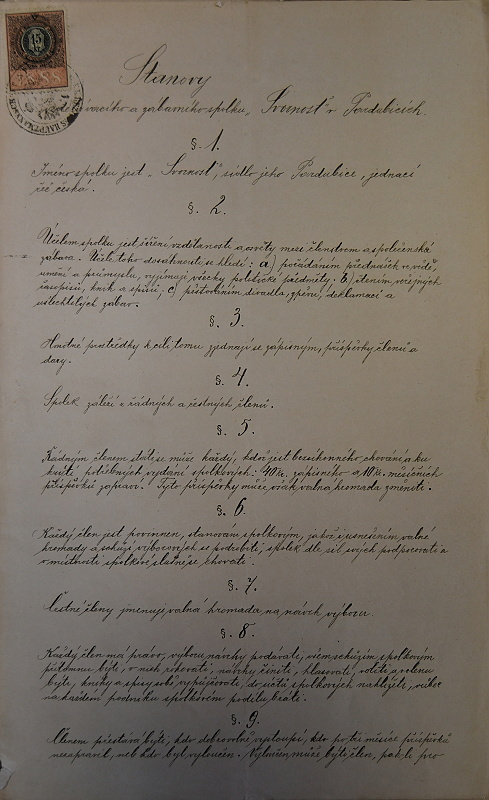 15
Stanovy
a zábavního spolku „Svornost“ v Pardubicích.
§. 1.
Jméno spolku jest „Svornost“, sídlo jeho Pardubice, jednací
řeč česká.
§. 2.
Účelem spolku jest šíření vzdělanosti a osvěty mezi členstvem a společenská
zábava. Účele toho dosáhnouti se hledí: a) pořádáním přednášek ve vědě,
umění a průmyslu, vyjímají všecky politické předměty. b) čtením veřejných
časopisů, knih a spisů, c) pěstováním divadla, zpěvu, deklamací a
ušlechtilých zábav.
§. 3.
Hmotné prostředky k cíli tomu zjednají se zápisným, příspěvky členů a
dary.
§. 4.
Spolek záleží z řádných a čestných členů.
§. 5.
Řádným členem státi se může každý, kdož jest bezúhonného chování a ku
potřebných vydání spolkových: 40 kr. zápisného a 10 kr. měsíčních
příspěvků zapraví. Tyto příspěvky může však valná hromada změniti.
§. 6.
Každý člen jest povinnen, stanovám spolkovým, jakož i usnešením valné
hromady a schůzí výborových se podrobiti, spolek dle sil svých podporovati a
v místnosti spolkové slušně se chovati.
§. 7.
Čestné členy jmenuje valná hromada na návrh výboru.
§. 8.
Každý člen má právo, výboru návrhy podávati, všem schůzím spolkovým
přítomnu býti, v nich rokovati, návrhy činiti, hlasovati, voliti a volenu
býti, knihy a spisy sobě vypůjčovati, do účtů spolkových nahlížeti, vůbec
na každém podniku spolkovém podílu bráti.
§. 9.
Členem přestává býti, kdo dobrovolně vystoupí, kdo po tři měsíce příspěvků
nezapravil, neb kdo byl vyloučen. Vyloučen může býti člen, pak-li pro